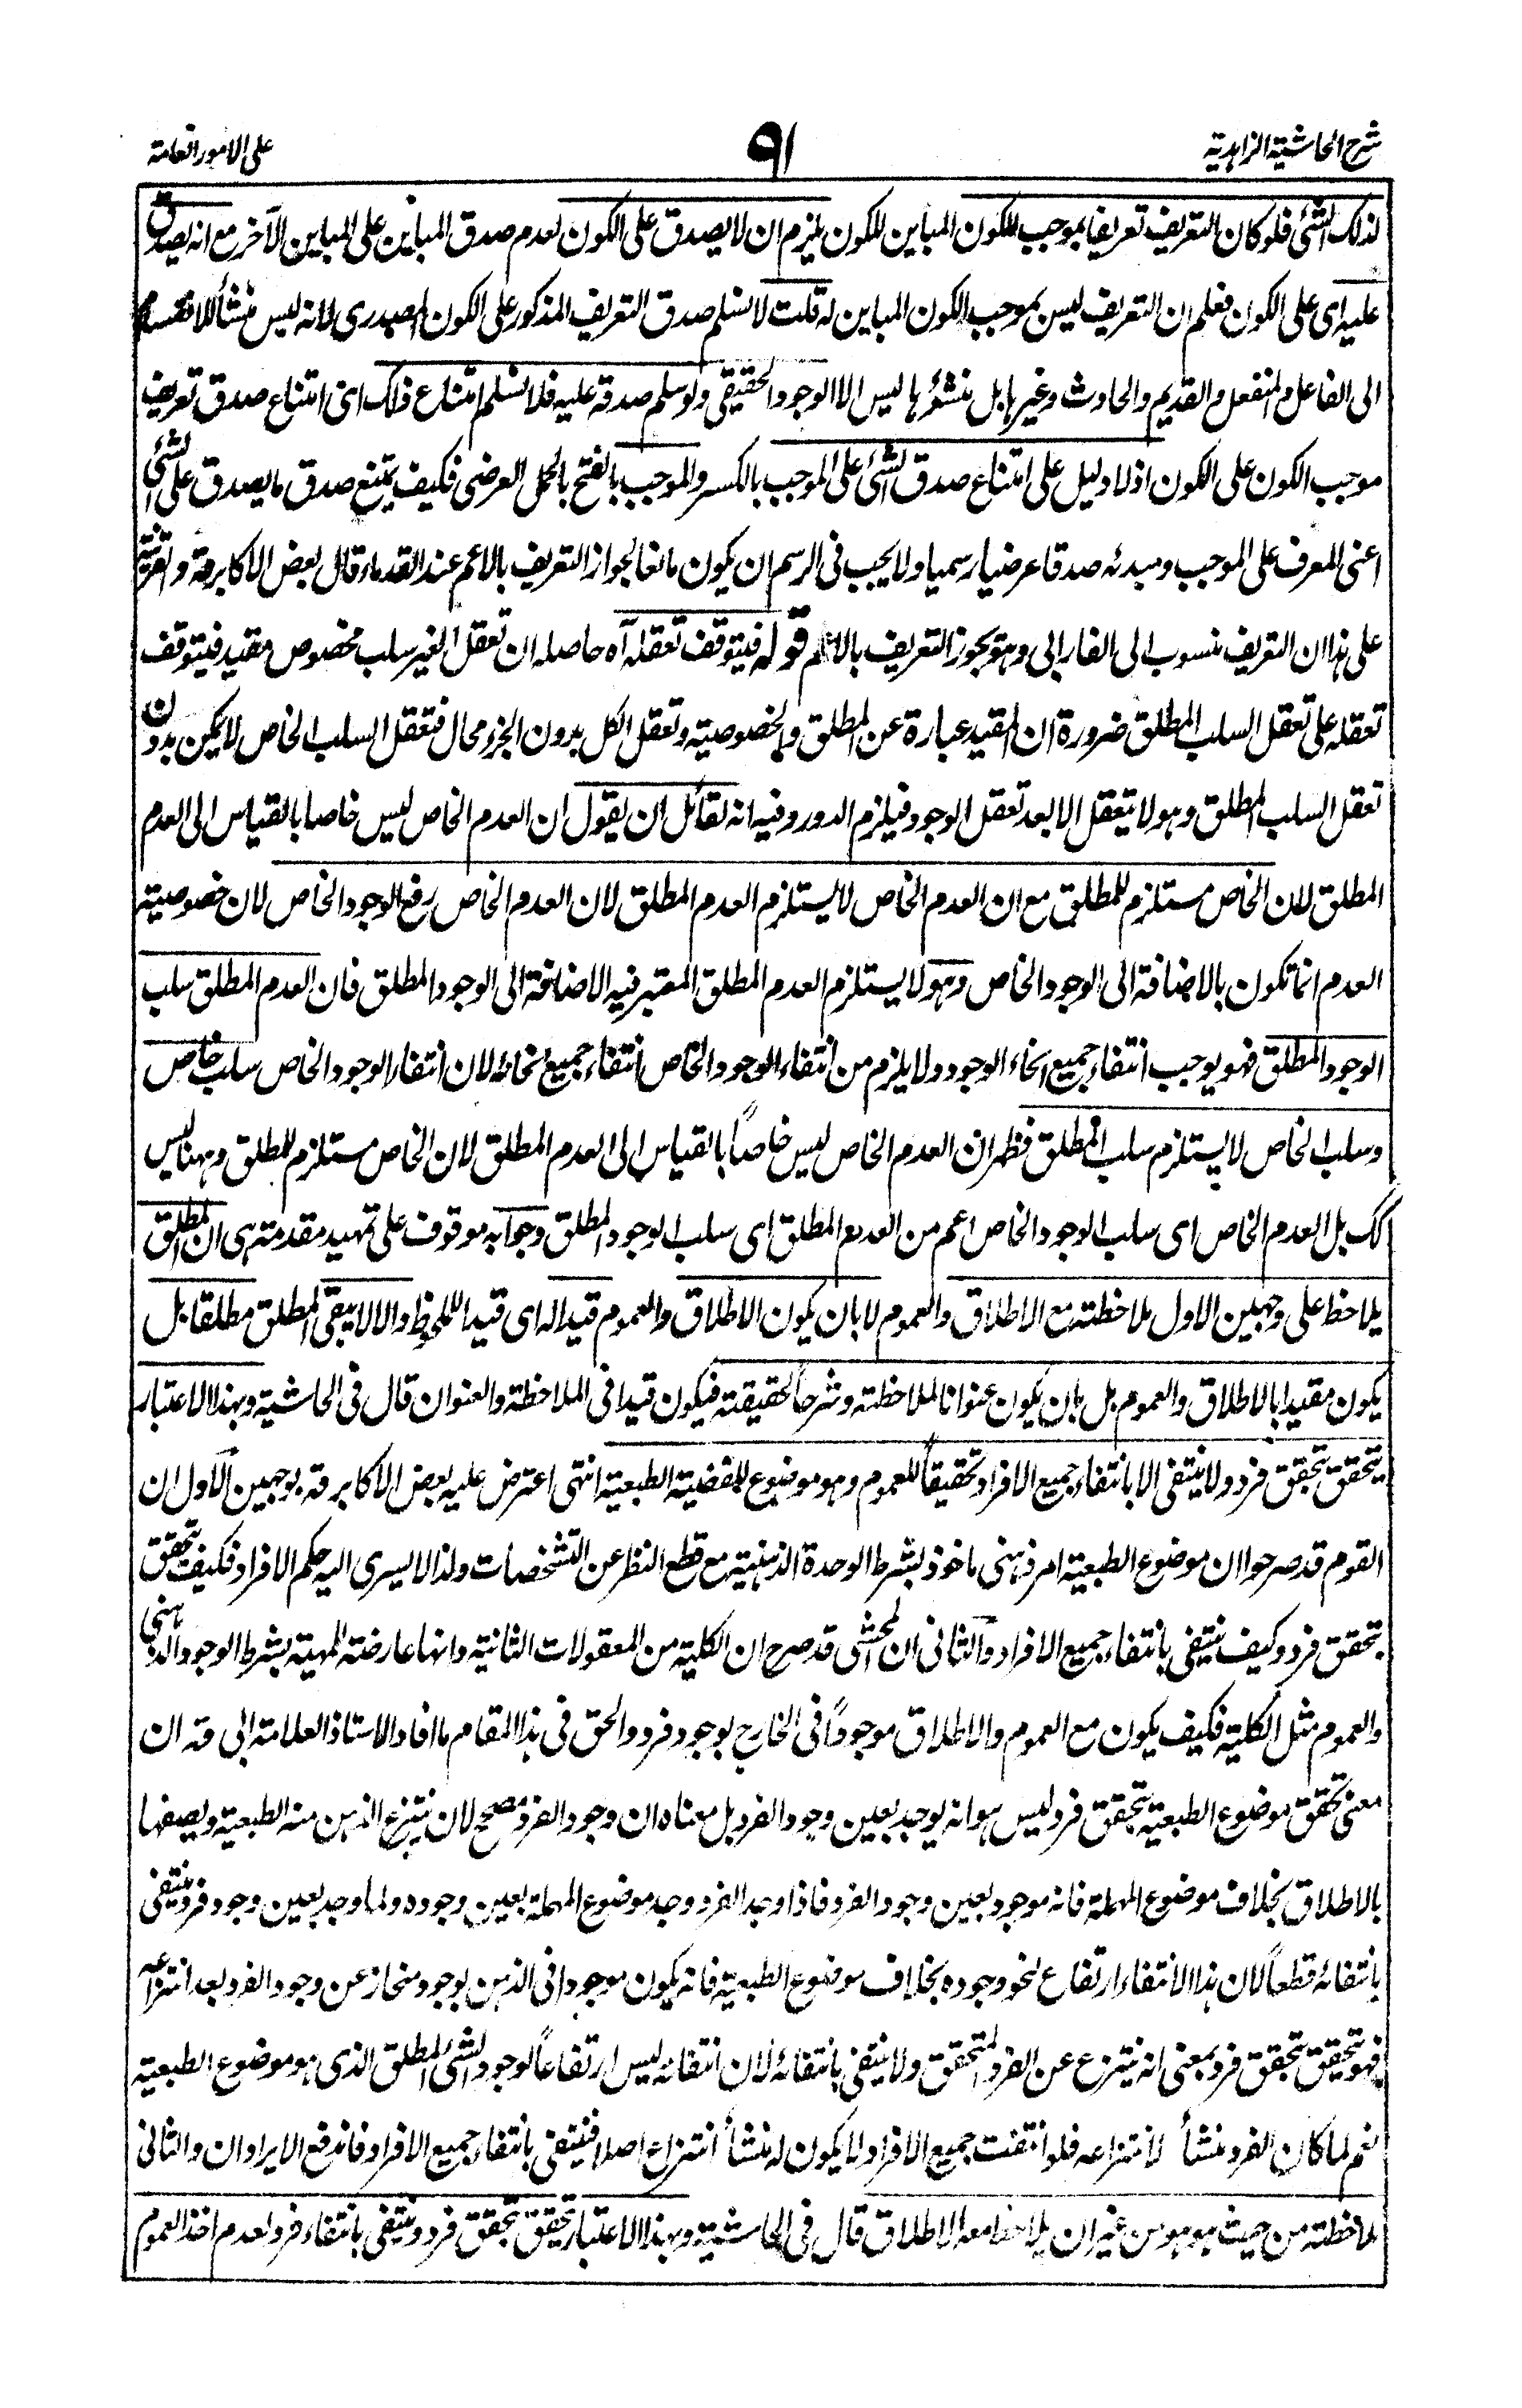 شرح الحاشية الزاهدية
٩١
على الامور العامة
لذلك الشئ فلو كان التعريف تعريفا بموجب للكون المباين للكون يلزم ان لا يصدق على الكون لعدم صدق المباين على المباين الآخر مع انه يصدق
عليه اى على الكون فعلم ان التعريف ليس بموجب الكون المباين له قلت لا نسلم صدق التعريف المذكور على الكون المصدرى لانه ليس منشأ للانقسام
الى الفاعل والمنفعل والقديم والحادث وغيرها بل منشؤها ليس الا الوجود الحقيقى ولو سلم صدقه عليه فلا نسلم امتناع ذلك اعنى امتناع صدق تعريف
موجب الكون على الكون اذ لا دليل على امتناع صدق الشئ على الموجب بالكسر والموجب بالفتح بالحمل العرضى فكيف يمتنع صدق ما يصدق على الشئ
اعنى المعرف على الموجب ومبدئه صدقا عرضيا رسميا ولا يجب فى الرسم ان يكون مانعا لجواز التعريف بالاعم عند القدماء قال بعض الاكابر قه والقرينة
على هذا ان التعريف منسوب الى الفارابى وهو يجوز التعريف بالاعم قوله فيتوقف تعقله آه حاصله ان تعقل الغير سلب مخصوص مقيد فيتوقف
تعقله على تعقل السلب المطلق ضرورة ان المقيد عبارة عن المطلق والخصوصية وتعقل الكل بدون الجزء محال فتعقل السلب الخاص لا يمكن بدون
تعقل السلب المطلق وهو لا يتعقل الا بعد تعقل الوجود فيلزم الدور وفيه انه لقائل ان يقول ان العدم الخاص ليس خاصا بالقياس الى العدم
المطلق لان الخاص مستلزم للمطلق مع ان العدم الخاص لا يستلزم العدم المطلق لان العدم الخاص رفع الوجود الخاص لان خصوصية
العدم انما تكون بالاضافة الى الوجود الخاص وهو لا يستلزم العدم المطلق المعتبر فيه الاضافة الى الوجود المطلق فان العدم المطلق سلب
الوجود المطلق فهو يوجب انتفاء جميع انحاء الوجود ولا يلزم من انتفاء الوجود الخاص انتفاء جميع انحائه لان انتفاء الوجود الخاص سلب خاص
وسلب الخاص لا يستلزم سلب المطلق فظهر ان العدم الخاص ليس خاصاً بالقياس الى العدم المطلق لان الخاص مستلزم للمطلق وههنا ليس
كك بل العدم الخاص اى سلب الوجود الخاص اعم من العدم المطلق اى سلب الوجود المطلق وجوابه موقوف على تمهيد مقدمة هى ان المطلق
يلاحظ على وجهين الاول ملاحظته مع الاطلاق والعموم لا بان يكون الاطلاق والعموم قيدا له اى قيدا للملحوظ والا لا يبقى المطلق مطلقا بل
يكون مقيدا بالاطلاق والعموم بل بان يكون عنوانا لملاحظته وشرحاً لحقيقته فيكون قيدا فى الملاحظة والعنوان قال فى الحاشية وبهذا الاعتبار
يتحقق بتحقق فرد ولا ينتفى الا بانتفاء جميع الافراد تحقيقاً للعموم وهو موضوع للقضية الطبعية انتهى اعترض عليه بعض الاكابر قه بوجهين الاول ان
القوم قد صرحوا ان موضوع الطبعية امر ذهنى ماخوذ بشرط الوحدة الذهنية مع قطع النظر عن التشخصات ولذا لا يسرى اليه حكم الافراد فكيف يتحقق
بتحقق فرد وكيف ينتفى بانتفاء جميع الافراد والثانى ان المحشى قد صرح ان الكلية من المعقولات الثانية وانها عارضة للمهية بشرط الوجود الذهنى
والعموم مثل الكلية فكيف يكون مع العموم والاطلاق موجوداً فى الخارج بوجود فرد والحق فى هذا المقام ما افاد الاستاذ العلامة ابى قه ان
معنى تحقق موضوع الطبعية بتحقق فرد ليس هو انه يوجد بعين وجود الفرد بل معناه ان وجود الفرد مصحح لان ينتزع الذهن منه الطبعية ويصفها
بالاطلاق بخلاف موضوع المهملة فانه موجود بعين وجود الفرد فاذا وجد الفرد وجد موضوع المهملة بعين وجوده ولما وجد بعين وجود فرد ينتفى
بانتفائه قطعاً لان هذا الانتفاء ارتفاع لنحو وجوده بخلاف موضوع الطبعية فانه يكون موجودا فى الذهن بوجود منحاز عن وجود الفرد بعد انتزاعه
فهو يتحقق بتحقق فرد بمعنى انه ينتزع عن الفرد المتحقق ولا ينتفى بانتفائه لان انتفائه ليس ارتفاعاً لوجود الشئ المطلق الذى هو موضوع الطبعية
نعم لما كان الفرد منشأ لانتزاعه فلو انتفت جميع الافراد لا يكون له منشأ انتزاع اصلا فينتفى بانتفاء جميع الافراد فاندفع الايرادان والثانى
ملاحظته من حيث هو هو من غير ان يلاحظ معه الاطلاق قال فى الحاشية وبهذا الاعتبار يتحقق بتحقق فرد وينتفى بانتفاء فرد لعدم اخذ العموم